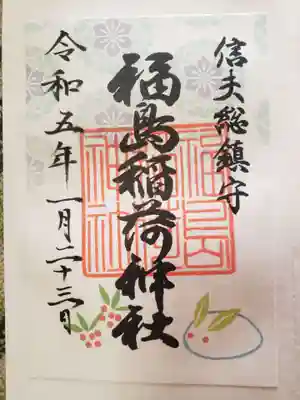 信夫総鎮守
福島稲荷神社
令和五年一月二十三日